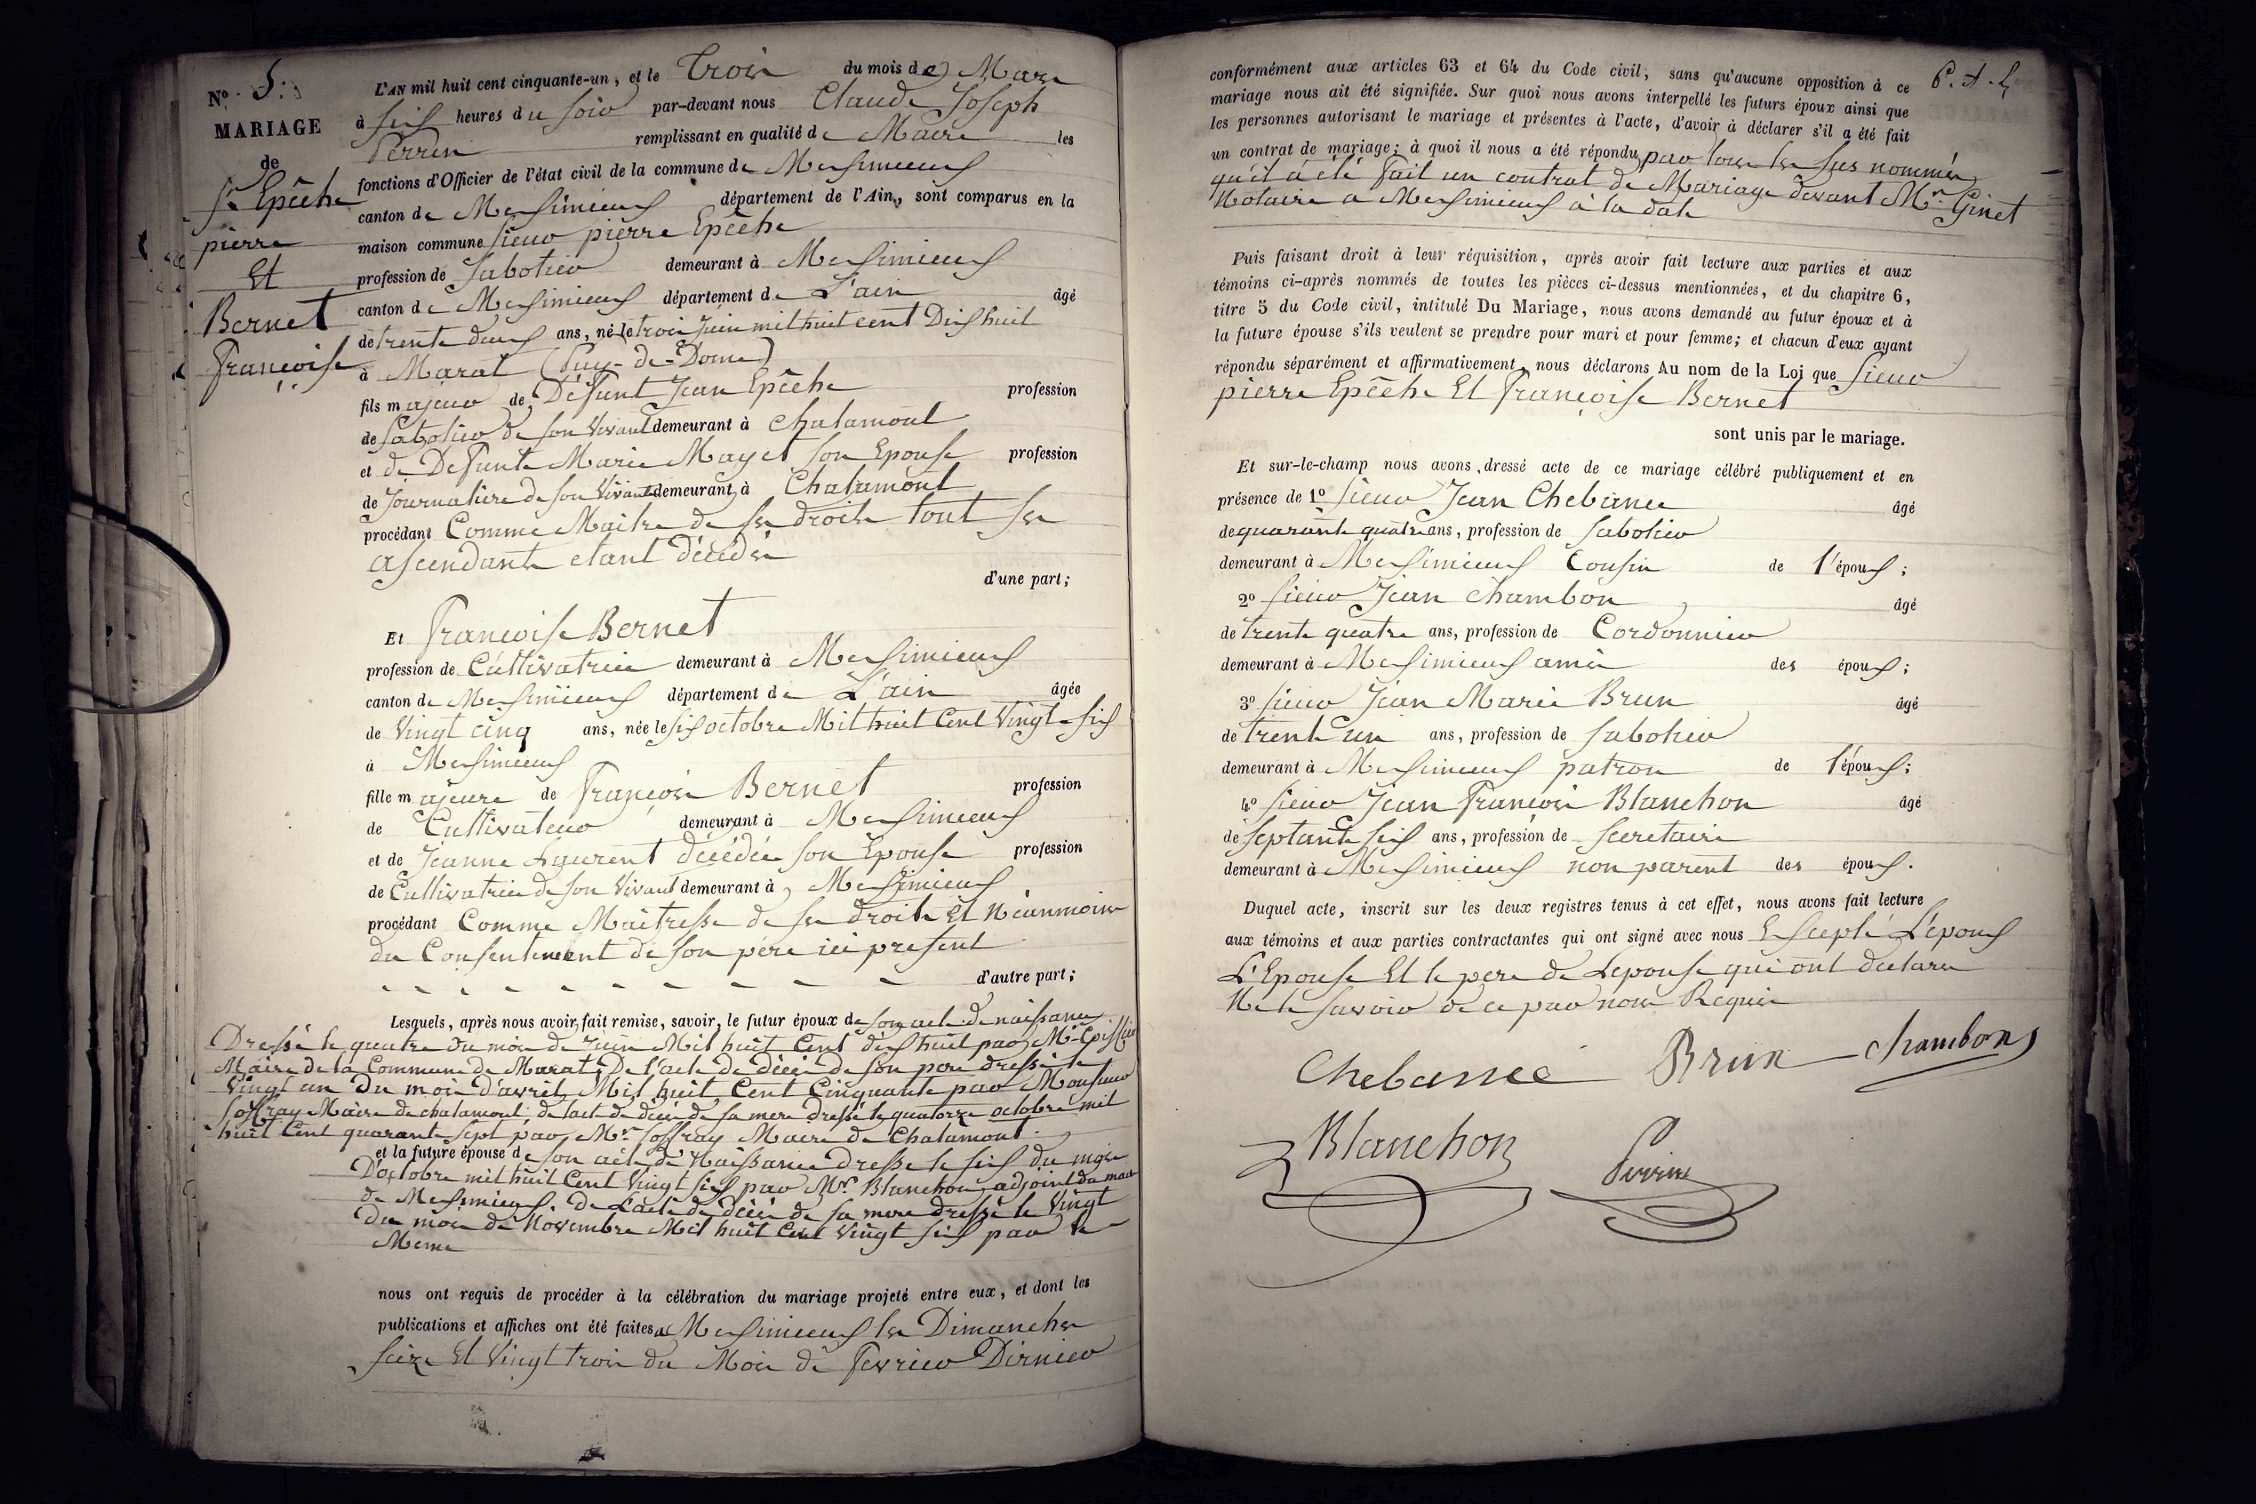 N.º 5.
MARIAGE
de
Sr Epêche
pierre
Et
Bernet
françoise
L'AN mil huit cent cinquante-un, et le Trois du mois de Mars
à six heures du soir par-devant nous Claude Joseph
Perrin remplissant en qualité de Maire les
fonctions d'Officier de l'état civil de la commune de Meximieux
canton de Meximieux département de l'Ain, sont comparus en la
maison commune sieur pierre Epêche
profession de Sabotier demeurant à Meximieux
canton de Meximieux département de L'ain âgé
de trente deux ans, né le trois Juin mil huit cent Dix huit
à Marat (Puy-de-Dome)
fils majeur de Défunt Jean Epêche profession
de Sabotier de son Vivant demeurant à Chalamont
et de Defunte Marie Mayet son Epouse profession
de Journalière de son Vivant demeurant à Chalamont
procédant Comme Maitre de ses droits tout ses
ascendants etant décédés
d'une part;
Et françoise Bernet
profession de Cultivatrice demeurant à Meximieux
canton de Meximieux département de L'ain âgée
de Vingt cinq ans, née le six octobre Mil huit Cent Vingt-six
à Meximieux
fille majeure de françois Bernet profession
de Cultivateur demeurant à Meximieux
et de Jeanne Laurent décédée son Epouse profession
de Cultivatrice de son Vivant demeurant à Meximieux
procédant Comme Maitresse de ses droits Et Néanmoins
du Consentement de son père ici présent
d'autre part;
Lesquels, après nous avoir fait remise, savoir, le futur époux de son acte de naissance
Dressé le quatre du mois de Juin Mil huit Cent dix huit par Mr
Maire de la Commune de Marat; De l'acte de décès de son pere dressé le
Vingt un du mois d'avril Mil huit Cent Cinquante par Monsieur
Soffray Maire de chalamont; de l'acte de décès de sa mere dressé le quatorze octobre mil
huit Cent quarante sept par Mr Soffray Maire de Chalamont.
et la future épouse de son acte de Naissance dressé le six du mois
D'octobre mil huit Cent Vingt six par Mr Blanchon adjoint du maire
de Meximieux. De L'acte de décès de sa mere dressé le Vingt
Du mois de Novembre Mil huit Cent Vingt six par le
Meme
nous ont requis de procéder à la célébration du mariage projeté entre eux, et dont les
publications et affiches ont été faites à Meximieux les Dimanches
seize Et Vingt trois du Mois de fevrier Dernier
conformément aux articles 63 et 64 du Code civil, sans qu'aucune opposition à ce
mariage nous ait été signifiée. Sur quoi nous avons interpellé les futurs époux ainsi que
les personnes autorisant le mariage et présentes à l'acte, d'avoir à déclarer s'il a été fait
un contrat de mariage; à quoi il nous a été répondu par tous les sus nommés
qu'il a été fait un contrat de Mariage devant Mr. Ginet
Notaire a Meximieux à la date
Puis faisant droit à leur réquisition, après avoir fait lecture aux parties et aux
témoins ci-après nommés de toutes les pièces ci-dessus mentionnées, et du chapitre 6,
titre 5 du Code civil, intitulé Du Mariage, nous avons demandé au futur époux et à
la future épouse s'ils veulent se prendre pour mari et pour femme; et chacun d'eux ayant
répondu séparément et affirmativement, nous déclarons Au nom de la Loi que sieur
pierre Epêche Et françoise Bernet
sont unis par le mariage.
Et sur-le-champ nous avons dressé acte de ce mariage célébré publiquement et en
présence de 1º sieur Jean Chebance âgé
de quarante quatre ans, profession de Sabotier
demeurant à Meximieux Cousin de l'époux;
2º sieur Jean chambon âgé
de trente quatre ans, profession de Cordonnier
demeurant à Meximieux amis des époux;
3º sieur Jean Marie Brun âgé
de trente un ans, profession de Sabotier
demeurant à Meximieux patron de l'époux;
4º sieur Jean françois Blanchon âgé
de septante six ans, profession de secretaire
demeurant à Meximieux non parent des époux.
Duquel acte, inscrit sur les deux registres tenus à cet effet, nous avons fait lecture
aux témoins et aux parties contractantes qui ont signé avec nous Excepté L'époux
L'Epouse Et le pere de Lepouse qui ont declaré
Ne le savoir de ce par nous Requis
Chebance Brun chambon
Blanchon Perrin